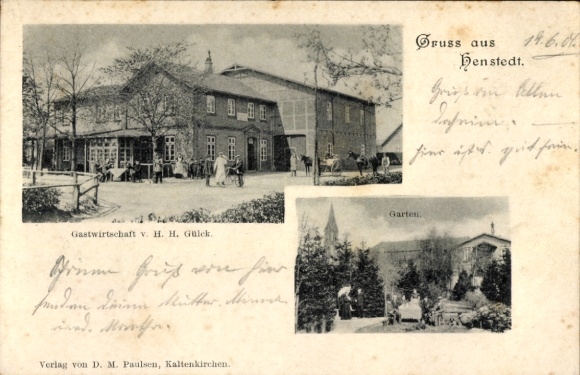 Gruss aus
Henstedt.
Gruß von Allen
daheim.
hier ist's gut sein.
Gastwirtschaft v. H. H. Gülck.
Garten.
Gruß von hier
senden deine Mutter, Minna
und
Verlag von D. M. Paulsen, Kaltenkirchen.